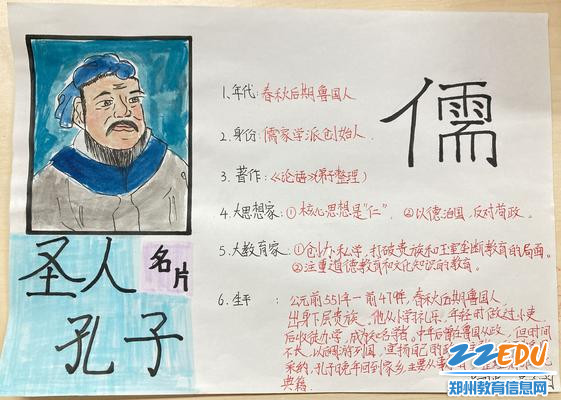 儒
1.年代:春秋后期鲁国人
2.身份:儒家学派创始人
3.著作:《论语》(弟子整理)
4.大思想家:①核心思想是“仁”。②以德治国,反对苛政。
5.大教育家:①创办私学,打破贵族和王室垄断教育的局面。
②注重道德教育和文化知识的教育。
6.生平:公元前551年-前479年,春秋后期鲁国人,
出身下层贵族,他从小学礼乐,年轻时做过小吏,
后收徒办学,成为知名学者。中年后曾在鲁国从政,但时间
不长,以后周游列国,宣扬自己的
采纳,孔子晚年回到家乡,主要从事
典籍。
圣人
名片
孔子
22EDU
郑州教育信息网